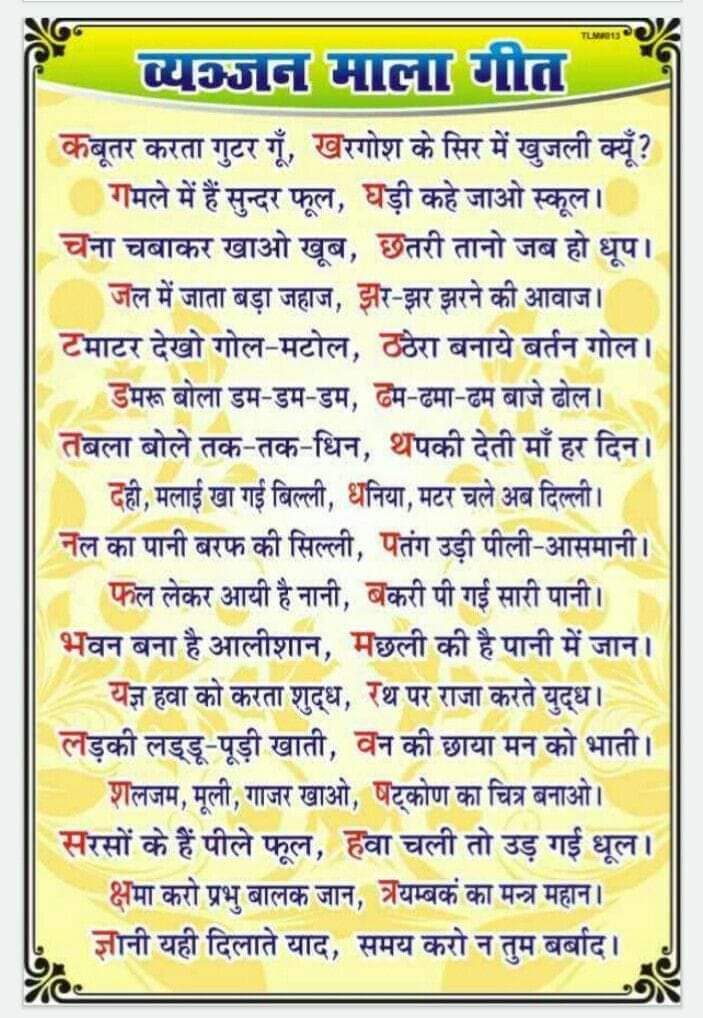 TLM#013
व्यञ्जन माला गीत
कबूतर करता गुटर गूँ, खरगोश के सिर में खुजली क्यूँ?
गमले में हैं सुन्दर फूल, घड़ी कहे जाओ स्कूल।
चना चबाकर खाओ खूब, छतरी तानो जब हो धूप।
जल में जाता बड़ा जहाज, झर-झर झरने की आवाज।
टमाटर देखो गोल-मटोल, ठठेरा बनाये बर्तन गोल।
डमरू बोला डम-डम-डम, ढम-ढमा-ढम बाजे ढोल।
तबला बोले तक-तक-धिन, थपकी देती माँ हर दिन।
दही, मलाई खा गई बिल्ली, धनिया, मटर चले अब दिल्ली।
नल का पानी बरफ की सिल्ली, पतंग उड़ी पीली-आसमानी।
फल लेकर आयी है नानी, बकरी पी गई सारी पानी।
भवन बना है आलीशान, मछली की है पानी में जान।
यज्ञ हवा को करता शुद्ध, रथ पर राजा करते युद्ध।
लड़की लड्डू-पूड़ी खाती, वन की छाया मन को भाती।
शलजम, मूली, गाजर खाओ, षट्कोण का चित्र बनाओ।
सरसों के हैं पीले फूल, हवा चली तो उड़ गई धूल।
क्षमा करो प्रभु बालक जान, त्रयम्बकं का मन्त्र महान।
ज्ञानी यही दिलाते याद, समय करो न तुम बर्बाद।